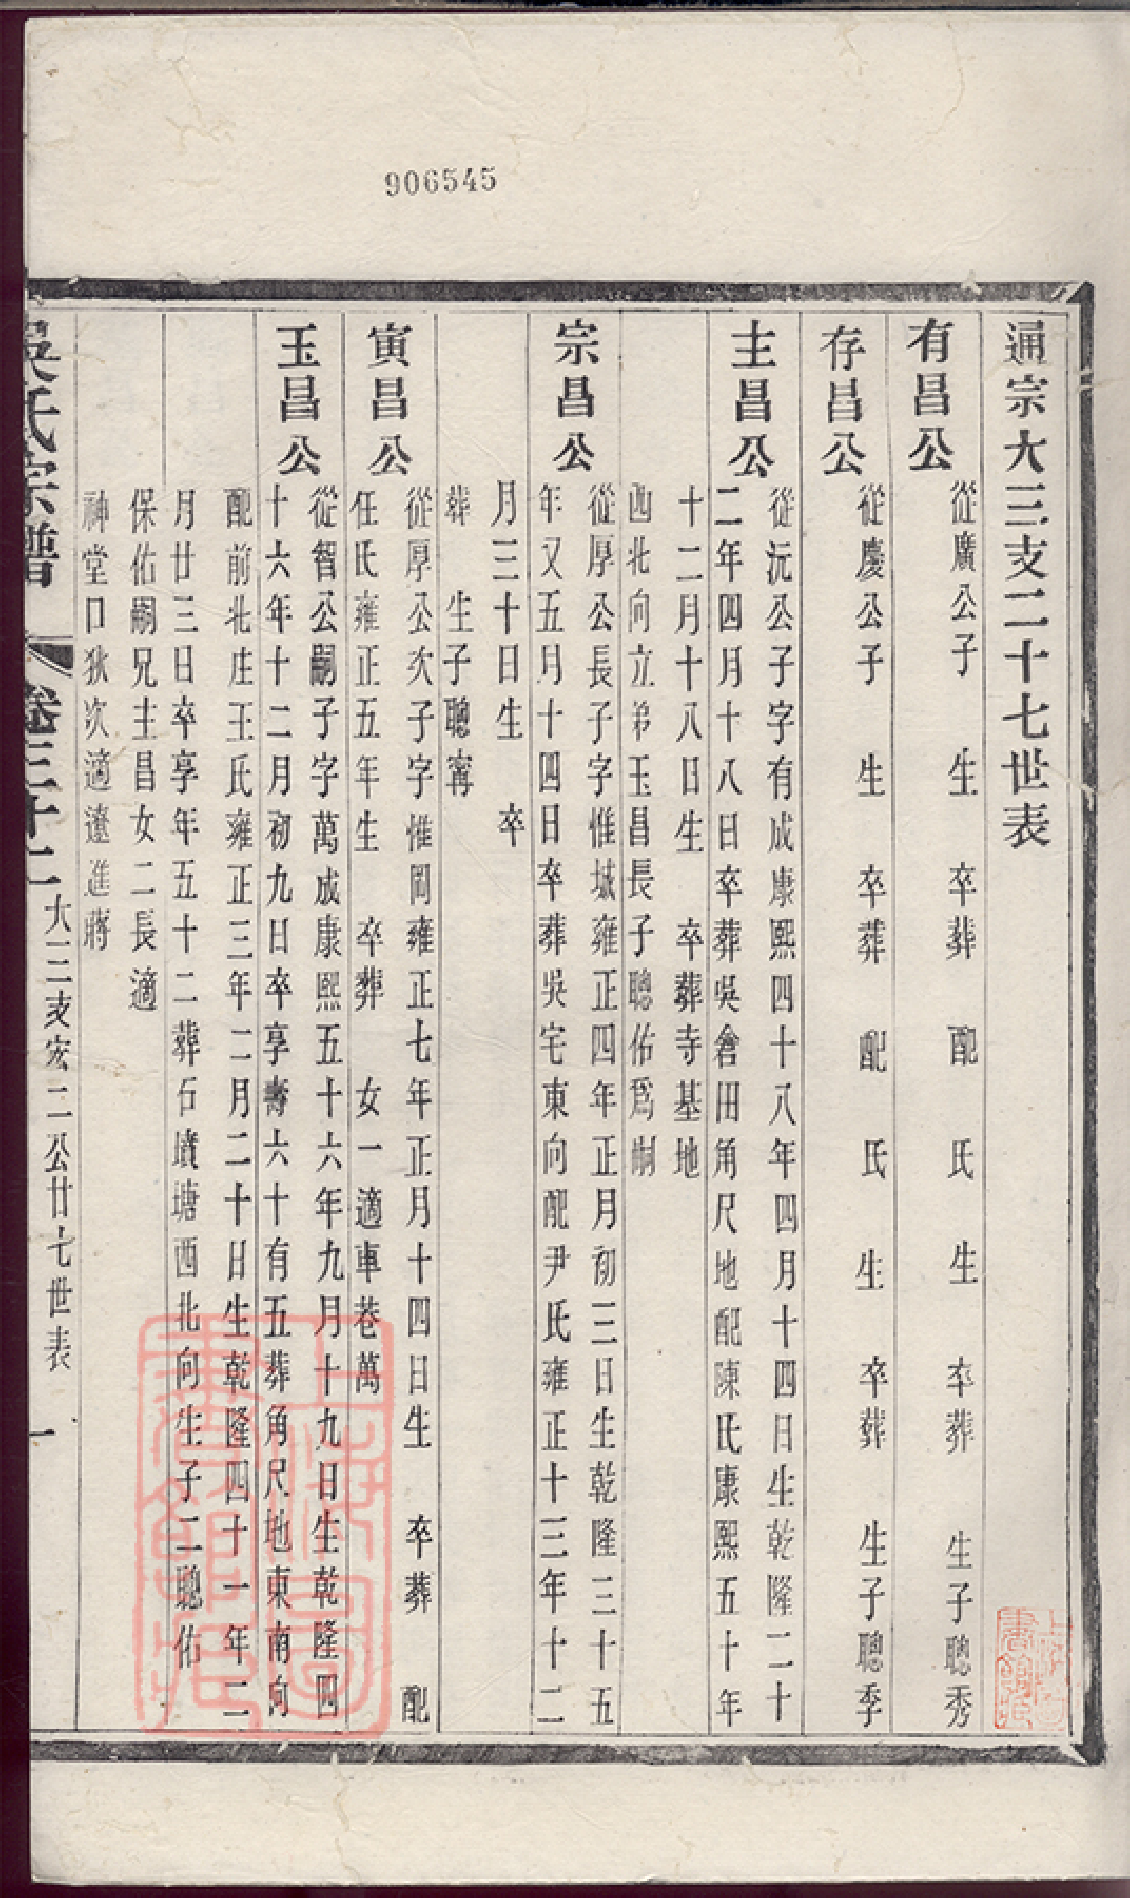 906545
通宗大三支二十七世表
有昌公
從廣公子 生 卒葬 配 氏 生 卒葬 生子聰秀
存昌公
從慶公子 生 卒葬 配 氏 生 卒葬 生子聰季
主昌公
從沅公子字有成康熙四十八年四月十四日生乾隆二十
二年四月十八日卒葬吳倉田角尺地配陳氏康熙五十年
十二月十八日生 卒葬寺基地
西北向立弟玉昌長子聰佑爲嗣
宗昌公
從厚公長子字惟城雍正四年正月初三日生乾隆三十五
年又五月十四日卒葬吳宅東向配尹氏雍正十三年十二
月三十日生 卒
葬 生子聰寗
寅昌公
從厚公次子字惟岡雍正七年正月十四日生 卒葬 配
任氏雍正五年生 卒葬 女一適車巷萬
玉昌公
從智公嗣子字萬成康熙五十六年九月十九日生乾隆四
十六年十二月初九日卒享壽六十有五葬角尺地東南向
配前北庄王氏雍正三年二月二十日生乾隆四十一年二
月廿三日卒享年五十二葬石墳塘西北向生子二聰佑
保佑嗣兄主昌女二長適
神堂口狄次適遼進蔣
吳氏宗譜 卷三十二 大三支宏二公廿七世表 一
上海圖書館藏